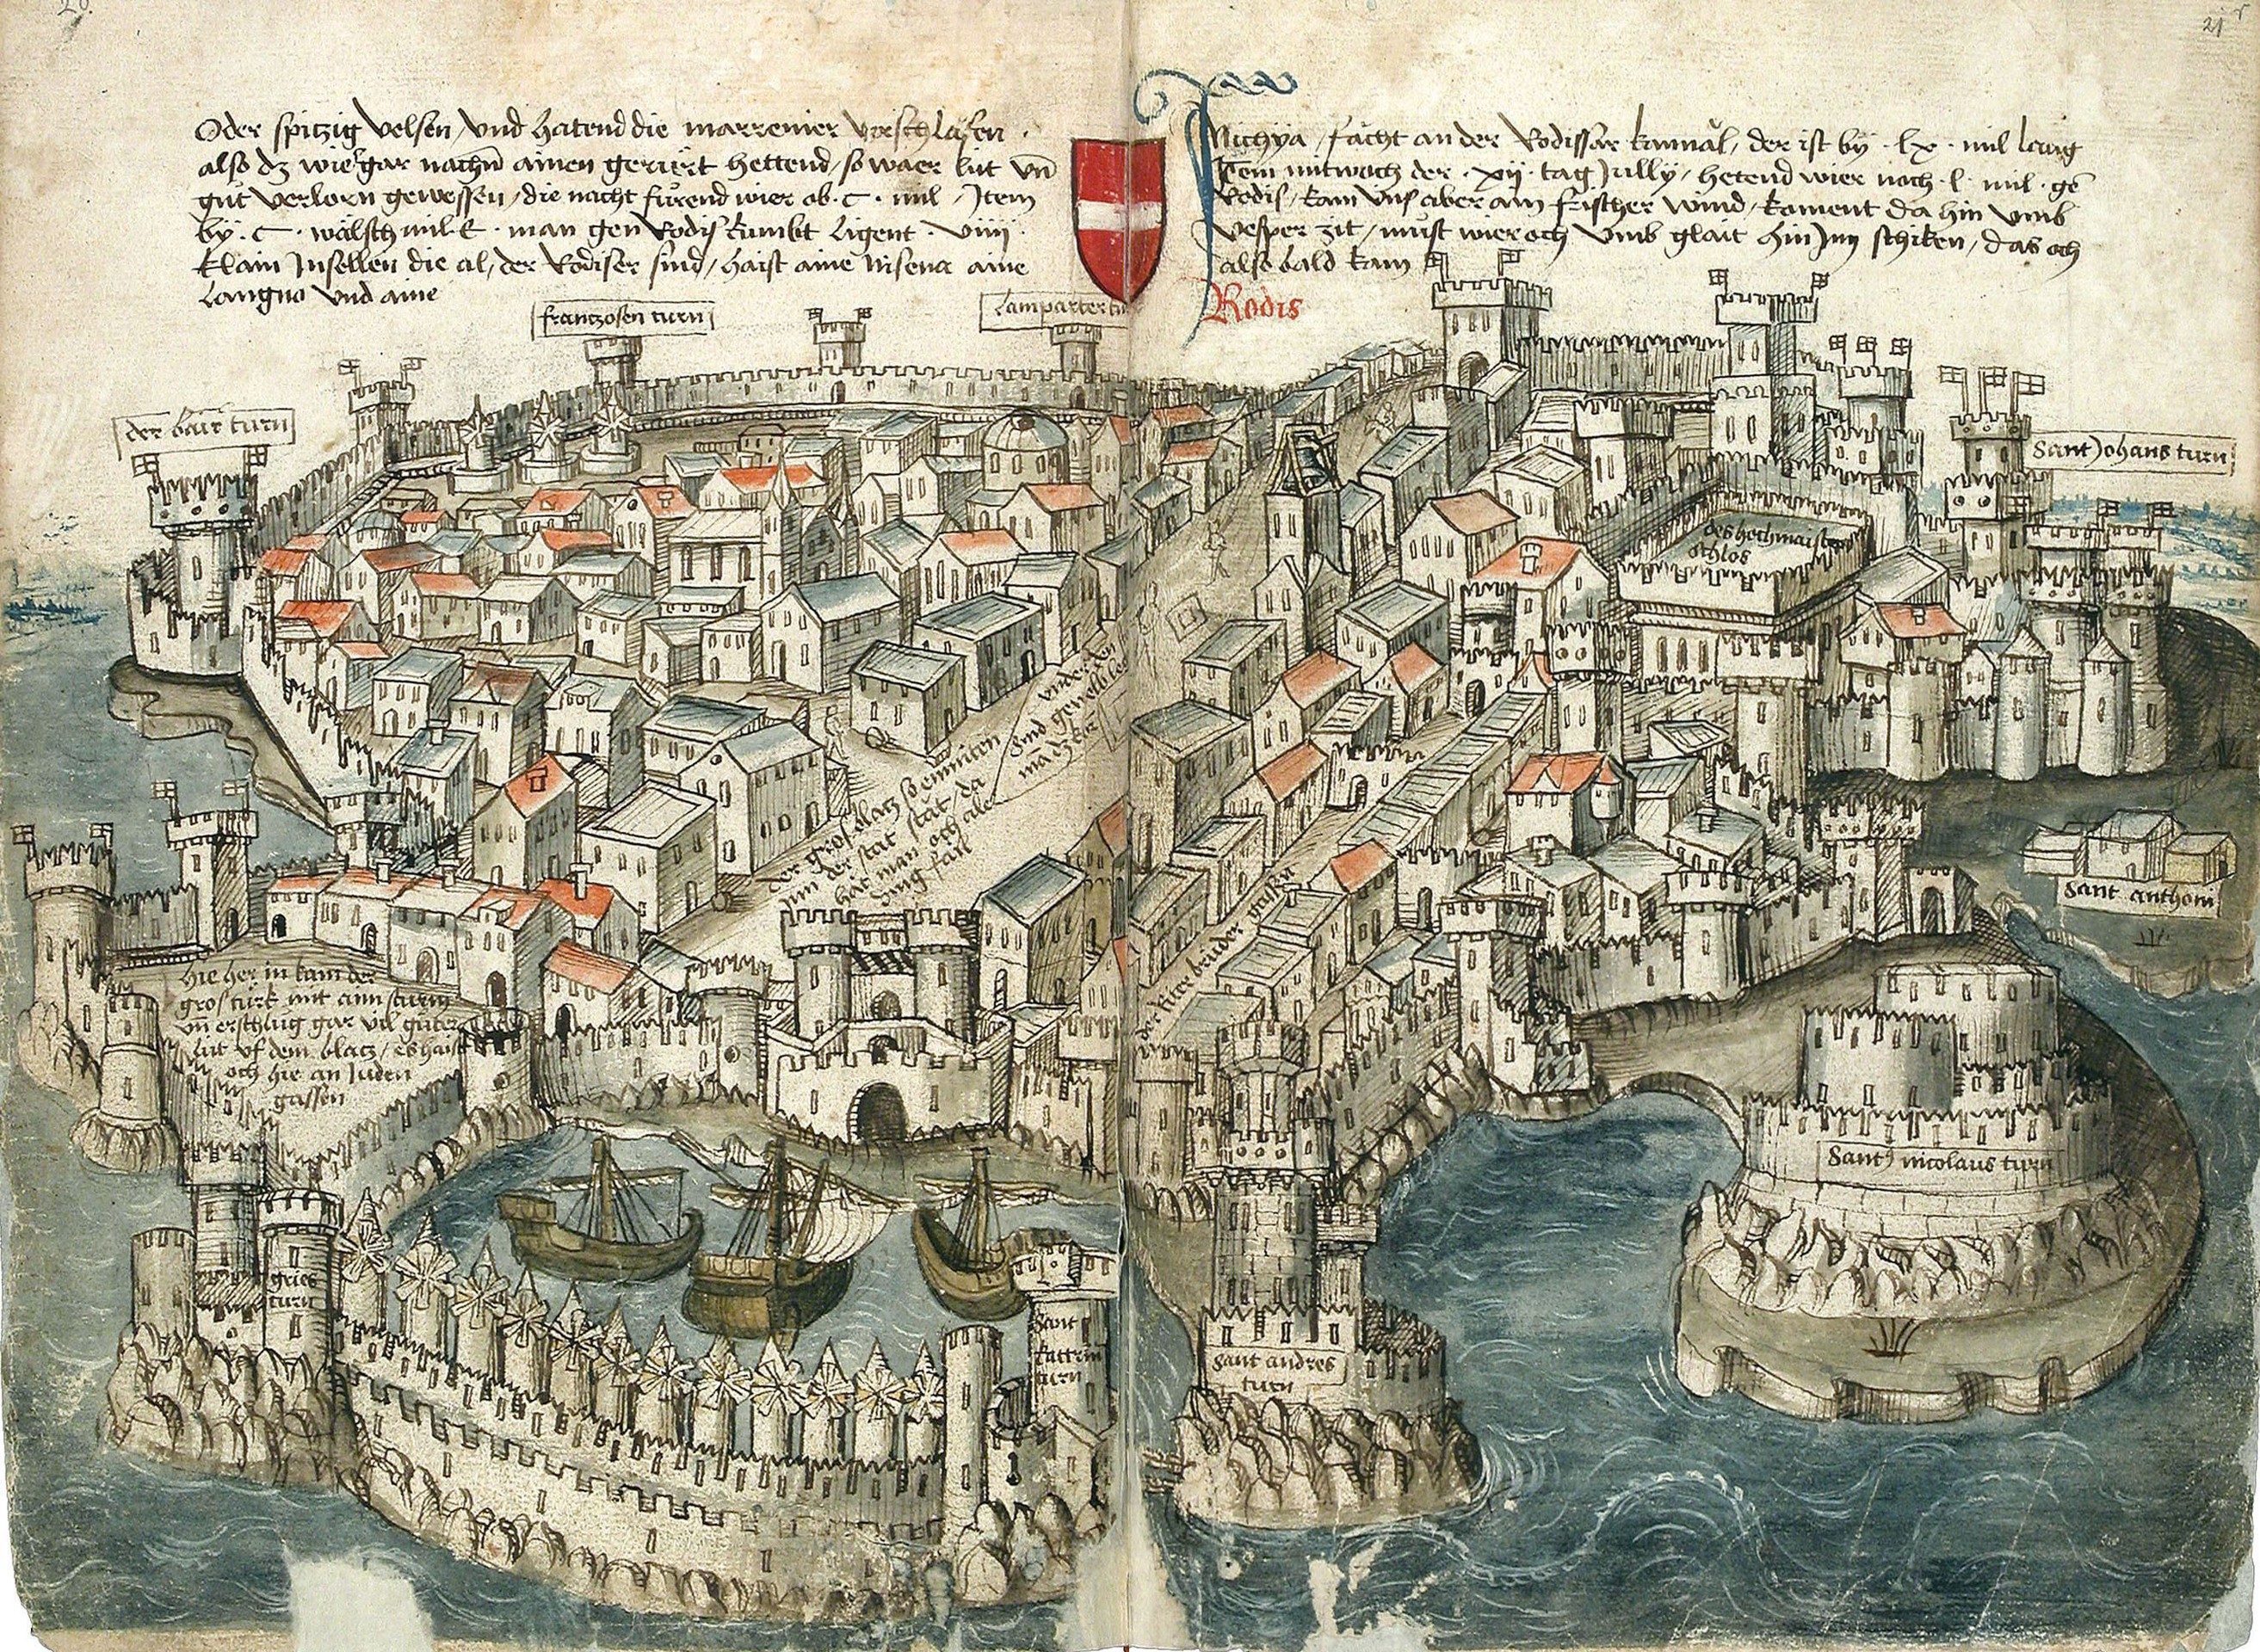 20.
21 r
Oder spitzig velsen / und hatend die marrenier verschlafen .
also dz wier gar nachn ainen gerürt hettend / so waer lüt vn̄
gut verlorn gewessen / die nacht fürend wier ob . C . mil / Item
by . C . wälsch mil E . man gen Rodis kumbt ligent . viiij .
klain Insellen die al / der Rodiser sind / haist aine Nisena aine
Langno und aine
Nichya / facht an der Rodissar kannal / der ist by . lx . mil lang
Item mitwoch der . xij . tag Jully / hetend wier noch . l . mil . gē
Rodis / kam uns aber ain frischer wind / koment da hin umb
vesper zit / must wier och umb glait hin Jny schiken / das och
also bald kam
Rodis
frantzosen turn
lamparter
der bair turn
Sant Johans turn
des hochmaisters
schlos
under den
sind gewelb
der gros platz so emitten
inn der stat / stat / da
hat man och aler
ding fail
der Riter brüder gassen
Sant anthoni
hie her in kam der
gros türk mit aim sturm
vn̄ erschlug gar vil guter
lüt uf dem blatz / es haist
och hie an Juden
gassen
Sant nicolaus turn
gries
turn
Sant
kattrin
turn
Sant andres
turn